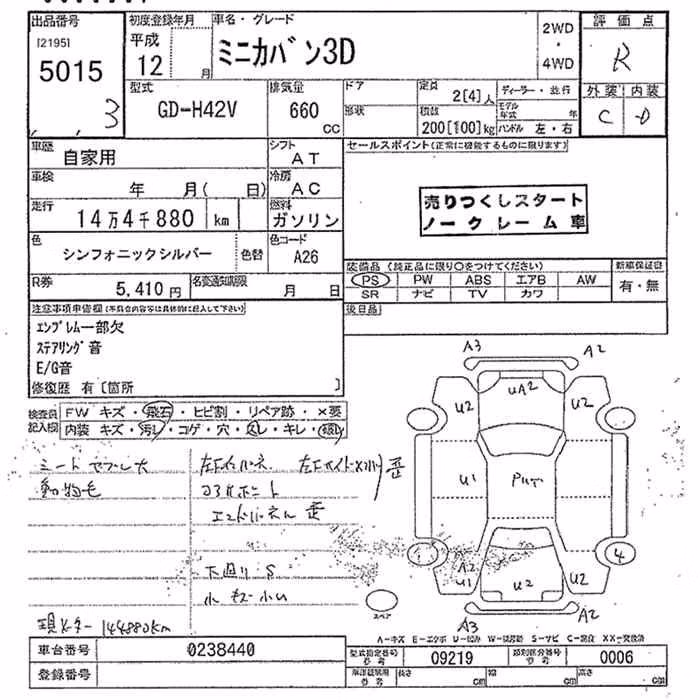 出品番号
[2195]
5015
3
初度登録年月
平成
12 月
車名・グレード
ミニカバン3D
2WD
・
4WD
評価点
R
外装 内装
C -D
型式
GD-H42V
排気量
660
CC
ドア
形状
定員
2[4]人
積数
200[100]kg
ディーラー・並行
モデル年式 年
ハンドル 左・右
車歴
自家用
シフト
AT
車検
年 月( 日)
冷房
AC
走行
14万4千880 km
燃料
ガソリン
色
シンフォニックシルバー
色替
色コード
A26
R券
5,410円
名変通知期限
月 日
セールスポイント(正常に機能するものに限ります)
売りつくしスタート
ノークレーム車
装備品(純正品に限り○をつけてください)
PS PW ABS エアB AW
SR ナビ TV カワ
新車保証書
有・無
後日品
注意事項申告欄(不具合内容等は具体的に記入して下さい)
エンブレム一部欠
ステアリング音
E/G音
修復歴 有[箇所 ]
検査員記入欄
FW キズ・飛石・ヒビ割・リペア跡・×要
内装 キズ・汚レ・コゲ・穴・スレ・キレ・破レ
動物毛
エンドパネル 歪
下廻り S
現メーター 144880km
A3
A2
U2
UA2
U2
U1
1
4
A2
U1
U2
U2
スペア
A3
A2
A-キズ E-エクボ U-凹み W-補修跡 S-サビ C-腐食 XX-交換済
車台番号
0238440
登録番号
型式指定番号
参考
09219
類別区分番号
参考
0006
長さ cm
幅 cm
高さ cm